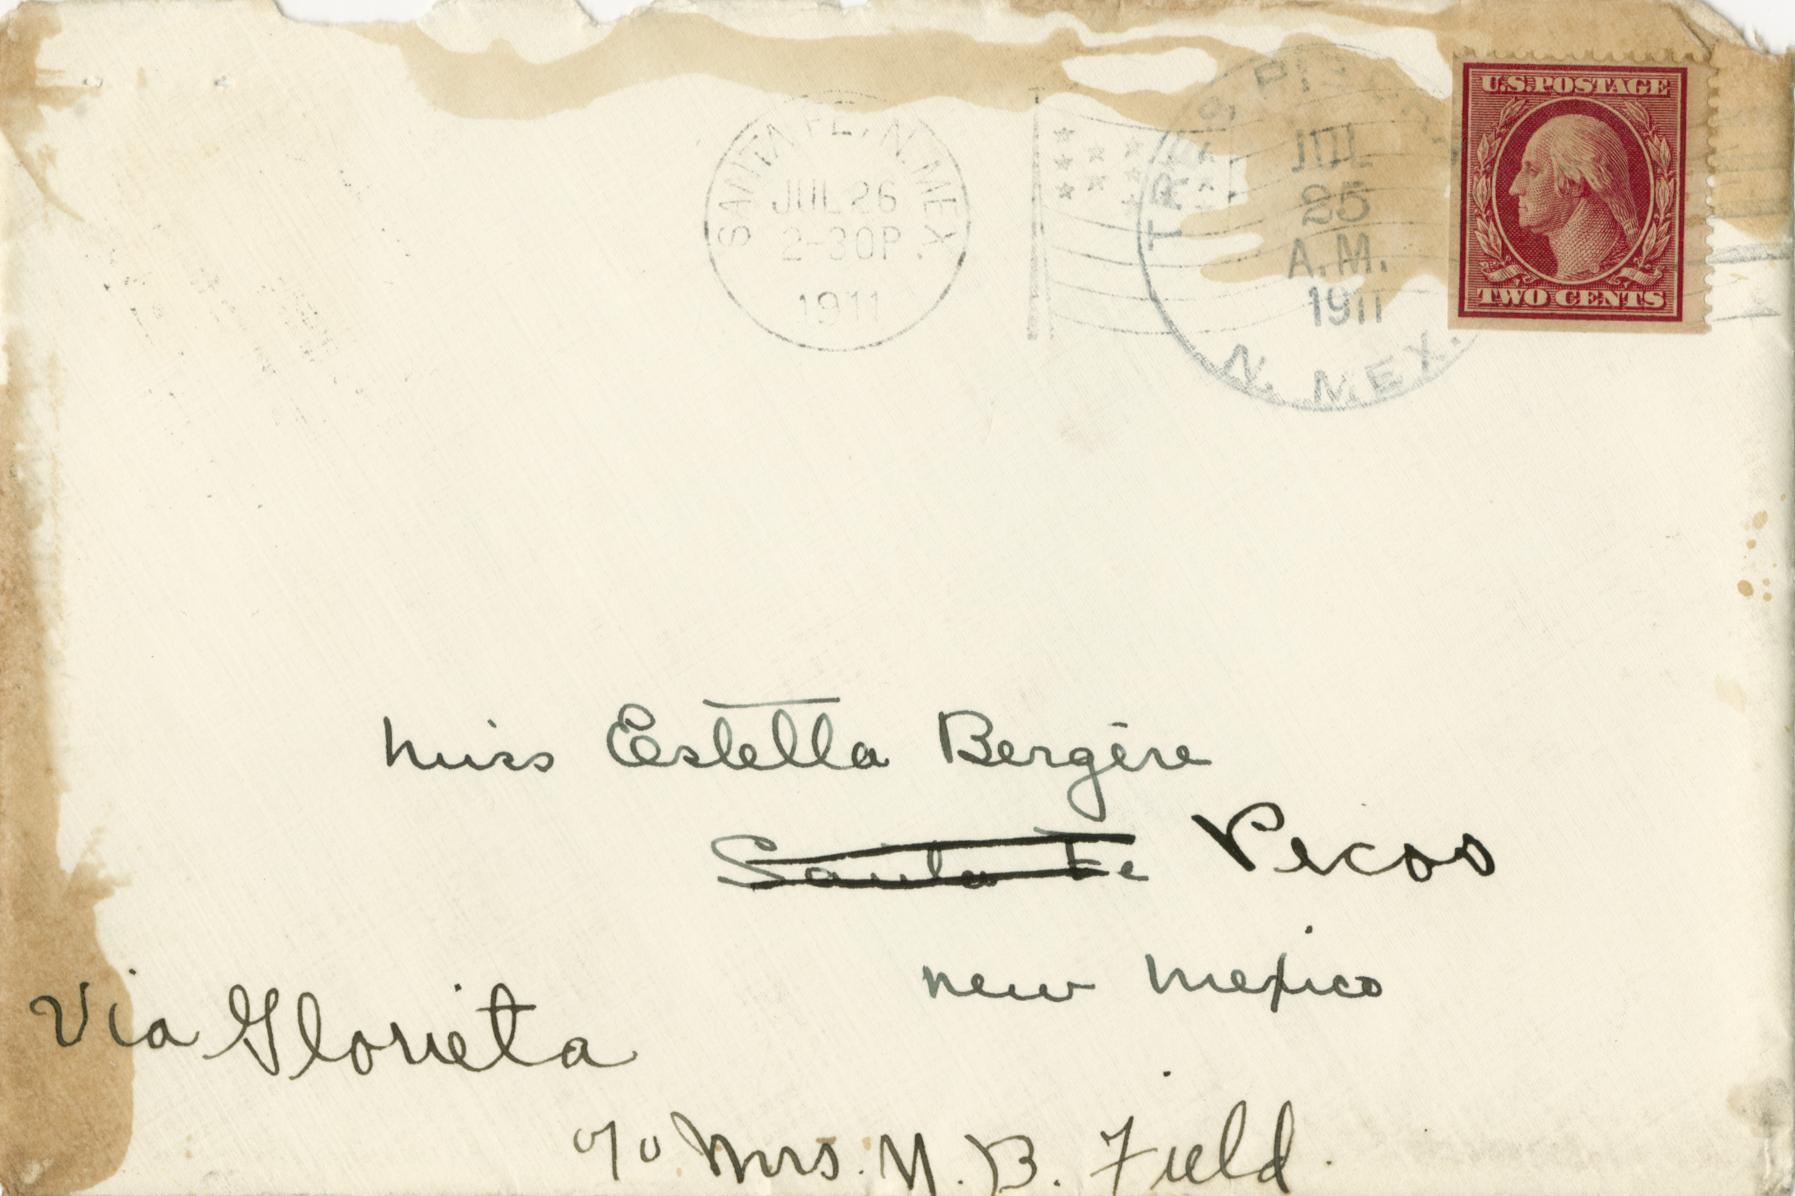 SANTA FE, N. MEX.
JUL 26
2-30P
1911
TRES PI
JUL
25
A.M.
1911
N. MEX.
U.S. POSTAGE
TWO CENTS
Miss Estella Bergère
~~Santa Fe~~ Pecos
New Mexico
Via Glorieta
c/o Mrs. N. B. Field.